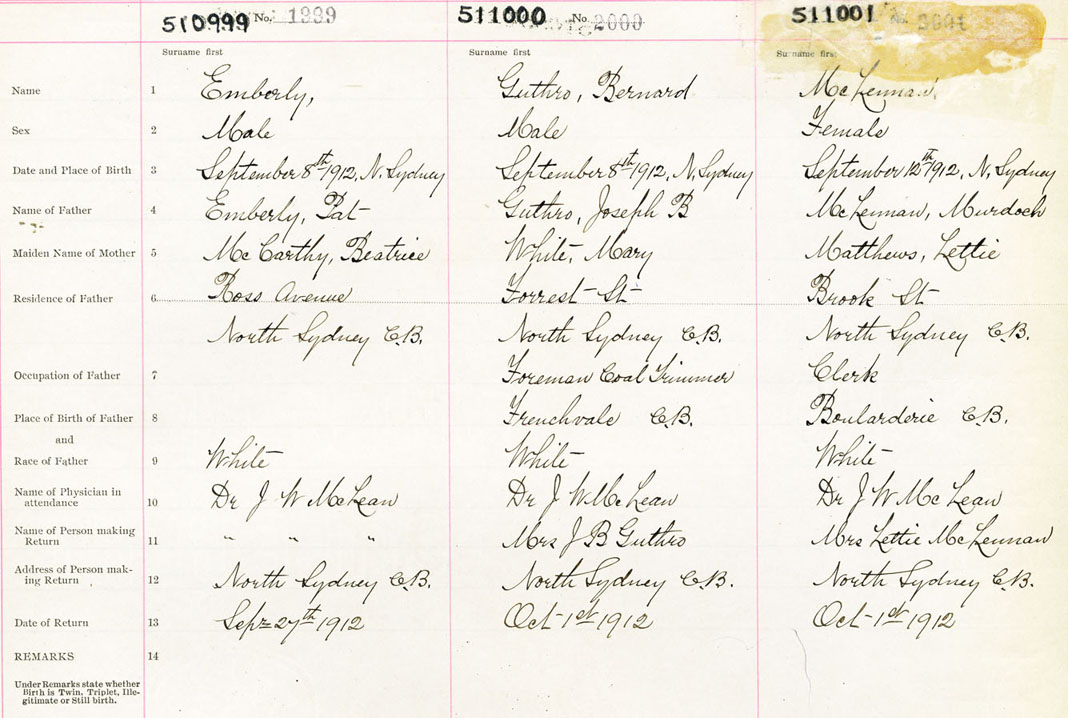 510999 No. 1999 511000 No. 2000 511001
Surname first Surname first Surname first
Name 1 Emberly, Guthro, Bernard McLennan,
Sex 2 Male Male Female
Date and Place of Birth 3 September 8th 1912, N. Sydney September 8th 1912, N. Sydney September 12th 1912, N. Sydney
Name of Father 4 Emberly, Pat Guthro, Joseph B McLennan, Murdoch
Maiden Name of Mother 5 McCarthy, Beatrice White, Mary Matthews, Lettie
Residence of Father 6 Ross Avenue Forrest St Brook St
North Sydney C.B. North Sydney C.B. North Sydney C.B.
Occupation of Father 7 Foreman Coal Trimmer Clerk
Place of Birth of Father 8 Frenchvale C.B. Boularderie C.B.
and
Race of Father 9 White White White
Name of Physician in
attendance 10 Dr J W McLean Dr J W McLean Dr J W McLean
Name of Person making
Return 11 " " " Mrs J B Guthro Mrs Lettie McLennan
Address of Person mak-
ing Return 12 North Sydney C.B. North Sydney C.B. North Sydney C.B.
Date of Return 13 Sept 27th 1912 Oct 1st 1912 Oct 1st 1912
REMARKS 14
Under Remarks state whether
Birth is Twin, Triplet, Ille-
gitimate or Still birth.